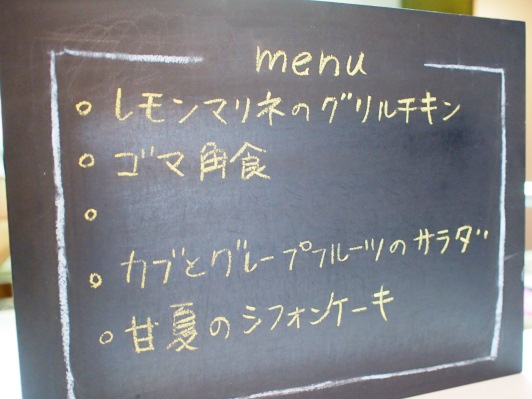 menu
○ レモンマリネのグリルチキン
○ ゴマ角食
○
○ カブとグレープフルーツのサラダ
○ 甘夏のシフォンケーキ